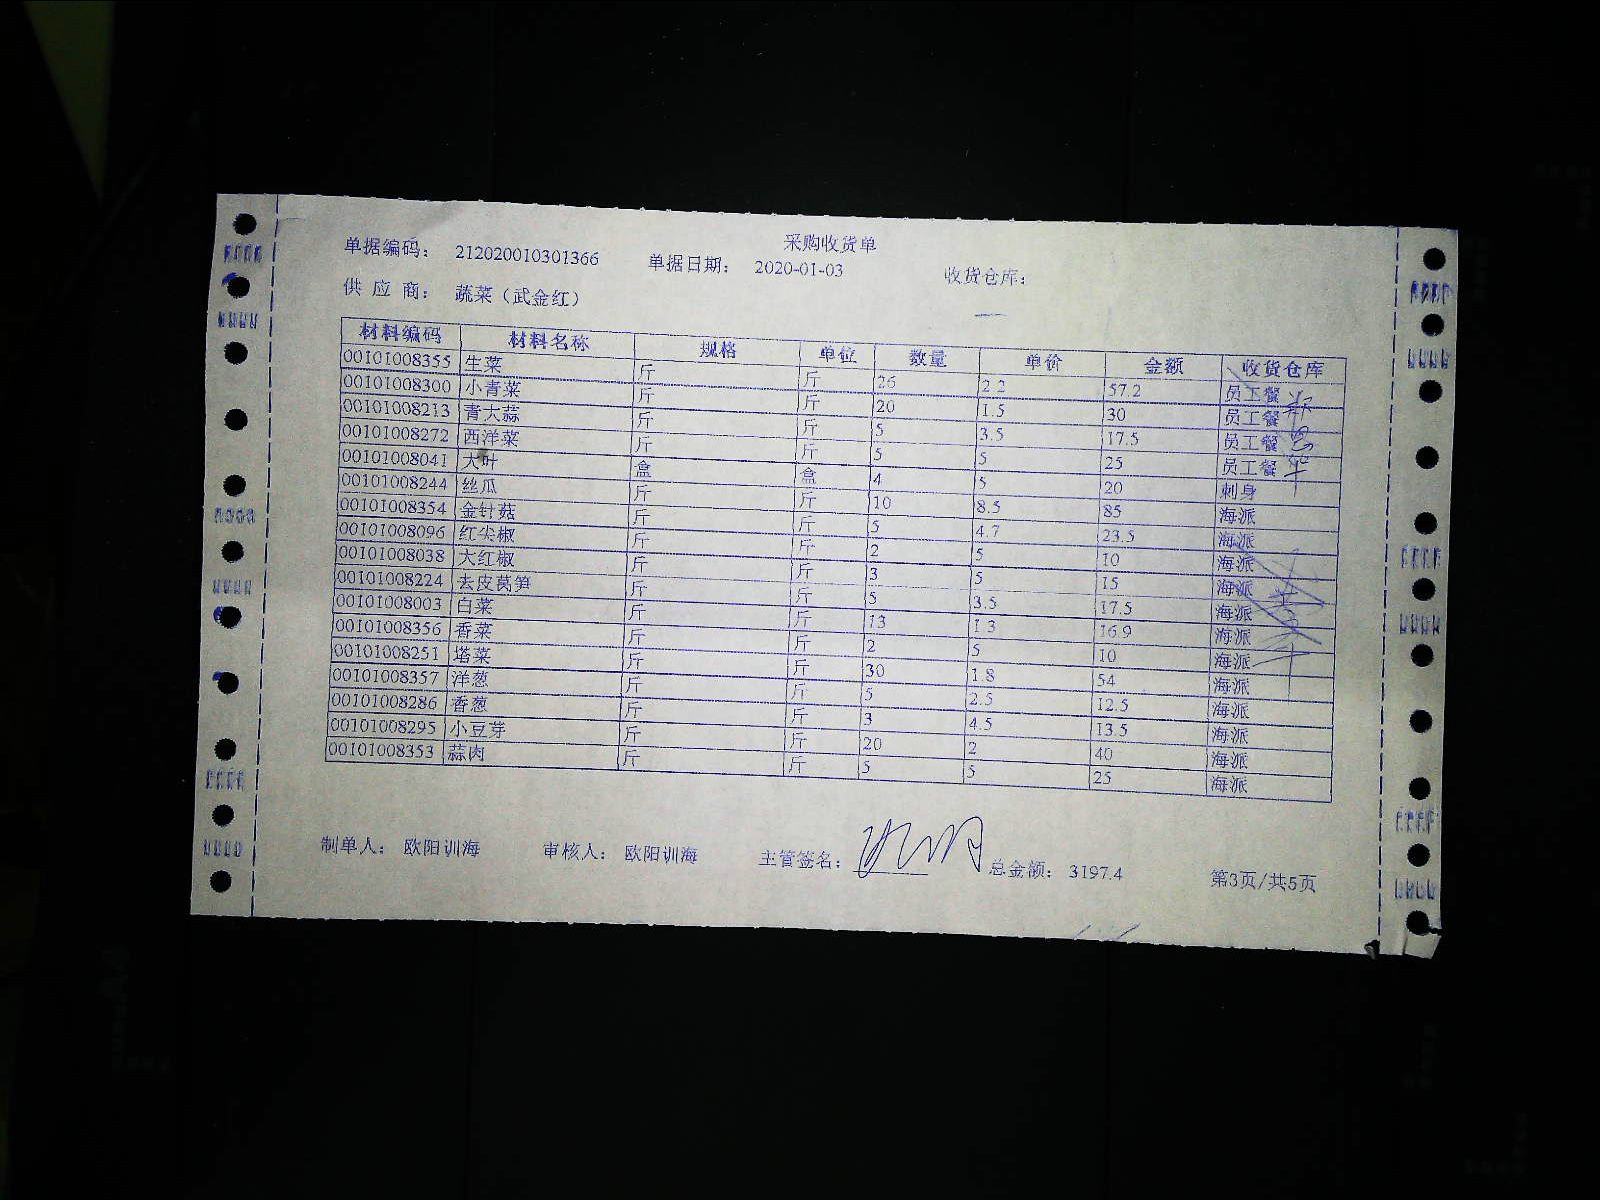 采购收货单
单据编码： 212020010301366 单据日期： 2020-01-03 收货仓库：
供 应 商： 蔬菜（武金红）
材料编码 材料名称 规格 单位 数量 单价 金额 收货仓库
00101008355 生菜 斤 斤 26 2.2 57.2 员工餐
00101008300 小青菜 斤 斤 20 1.5 30 员工餐
00101008213 青大蒜 斤 斤 5 3.5 17.5 员工餐
00101008272 西洋菜 斤 斤 5 5 25 员工餐
00101008041 大叶 盒 盒 4 5 20 刺身
00101008244 丝瓜 斤 斤 10 8.5 85 海派
00101008354 金针菇 斤 斤 5 4.7 23.5 海派
00101008096 红尖椒 斤 斤 2 5 10 海派
00101008038 大红椒 斤 斤 3 5 15 海派
00101008224 去皮莴笋 斤 斤 5 3.5 17.5 海派
00101008003 白菜 斤 斤 13 1.3 16.9 海派
00101008356 香菜 斤 斤 2 5 10 海派
00101008251 塔菜 斤 斤 30 1.8 54 海派
00101008357 洋葱 斤 斤 5 2.5 12.5 海派
00101008286 香葱 斤 斤 3 4.5 13.5 海派
00101008295 小豆芽 斤 斤 20 2 40 海派
00101008353 蒜肉 斤 斤 5 5 25 海派
制单人： 欧阳训海 审核人： 欧阳训海 主管签名： 总金额： 3197.4 第3页/共5页